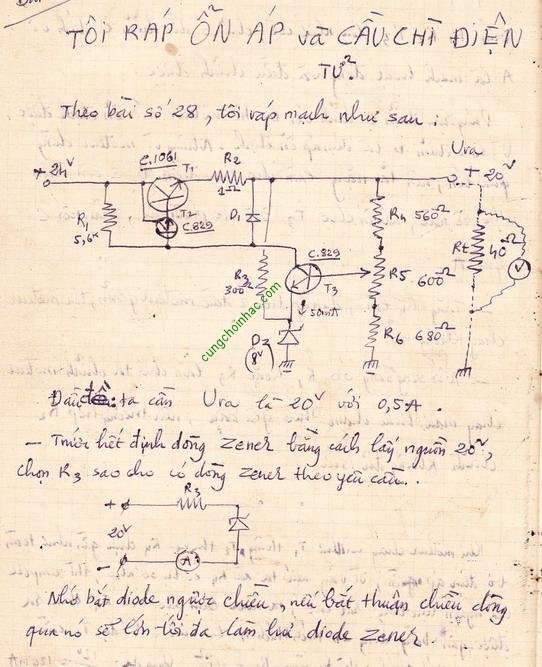 TÔI RÁP ỔN ÁP và CẦU CHÌ ĐIỆN
TỬ.
Theo bài số 28, tôi ráp mạch như sau :
Ura
+24V
C.1061
T1
R2
1Ω
+ 20V
R1
5,6K
T2
C.829
D1
R4 560Ω
Rt
40Ω
V
R3
300Ω
C.829
T3
R5
600Ω
50mA
DZ
(8V)
R6 680Ω
cungchoinhac.com
Đầu tiên: ta cần Ura là 20V với 0,5A.
- Trước hết định dòng zener bằng cách lấy nguồn 20V,
chọn R3 sao cho có dòng zener theo yêu cầu.
R3
+
20V
-
A
Nhớ bắt diode ngược chiều, nếu bắt thuận chiều dòng
qua nó sẽ lớn tối đa làm hư diode zener.